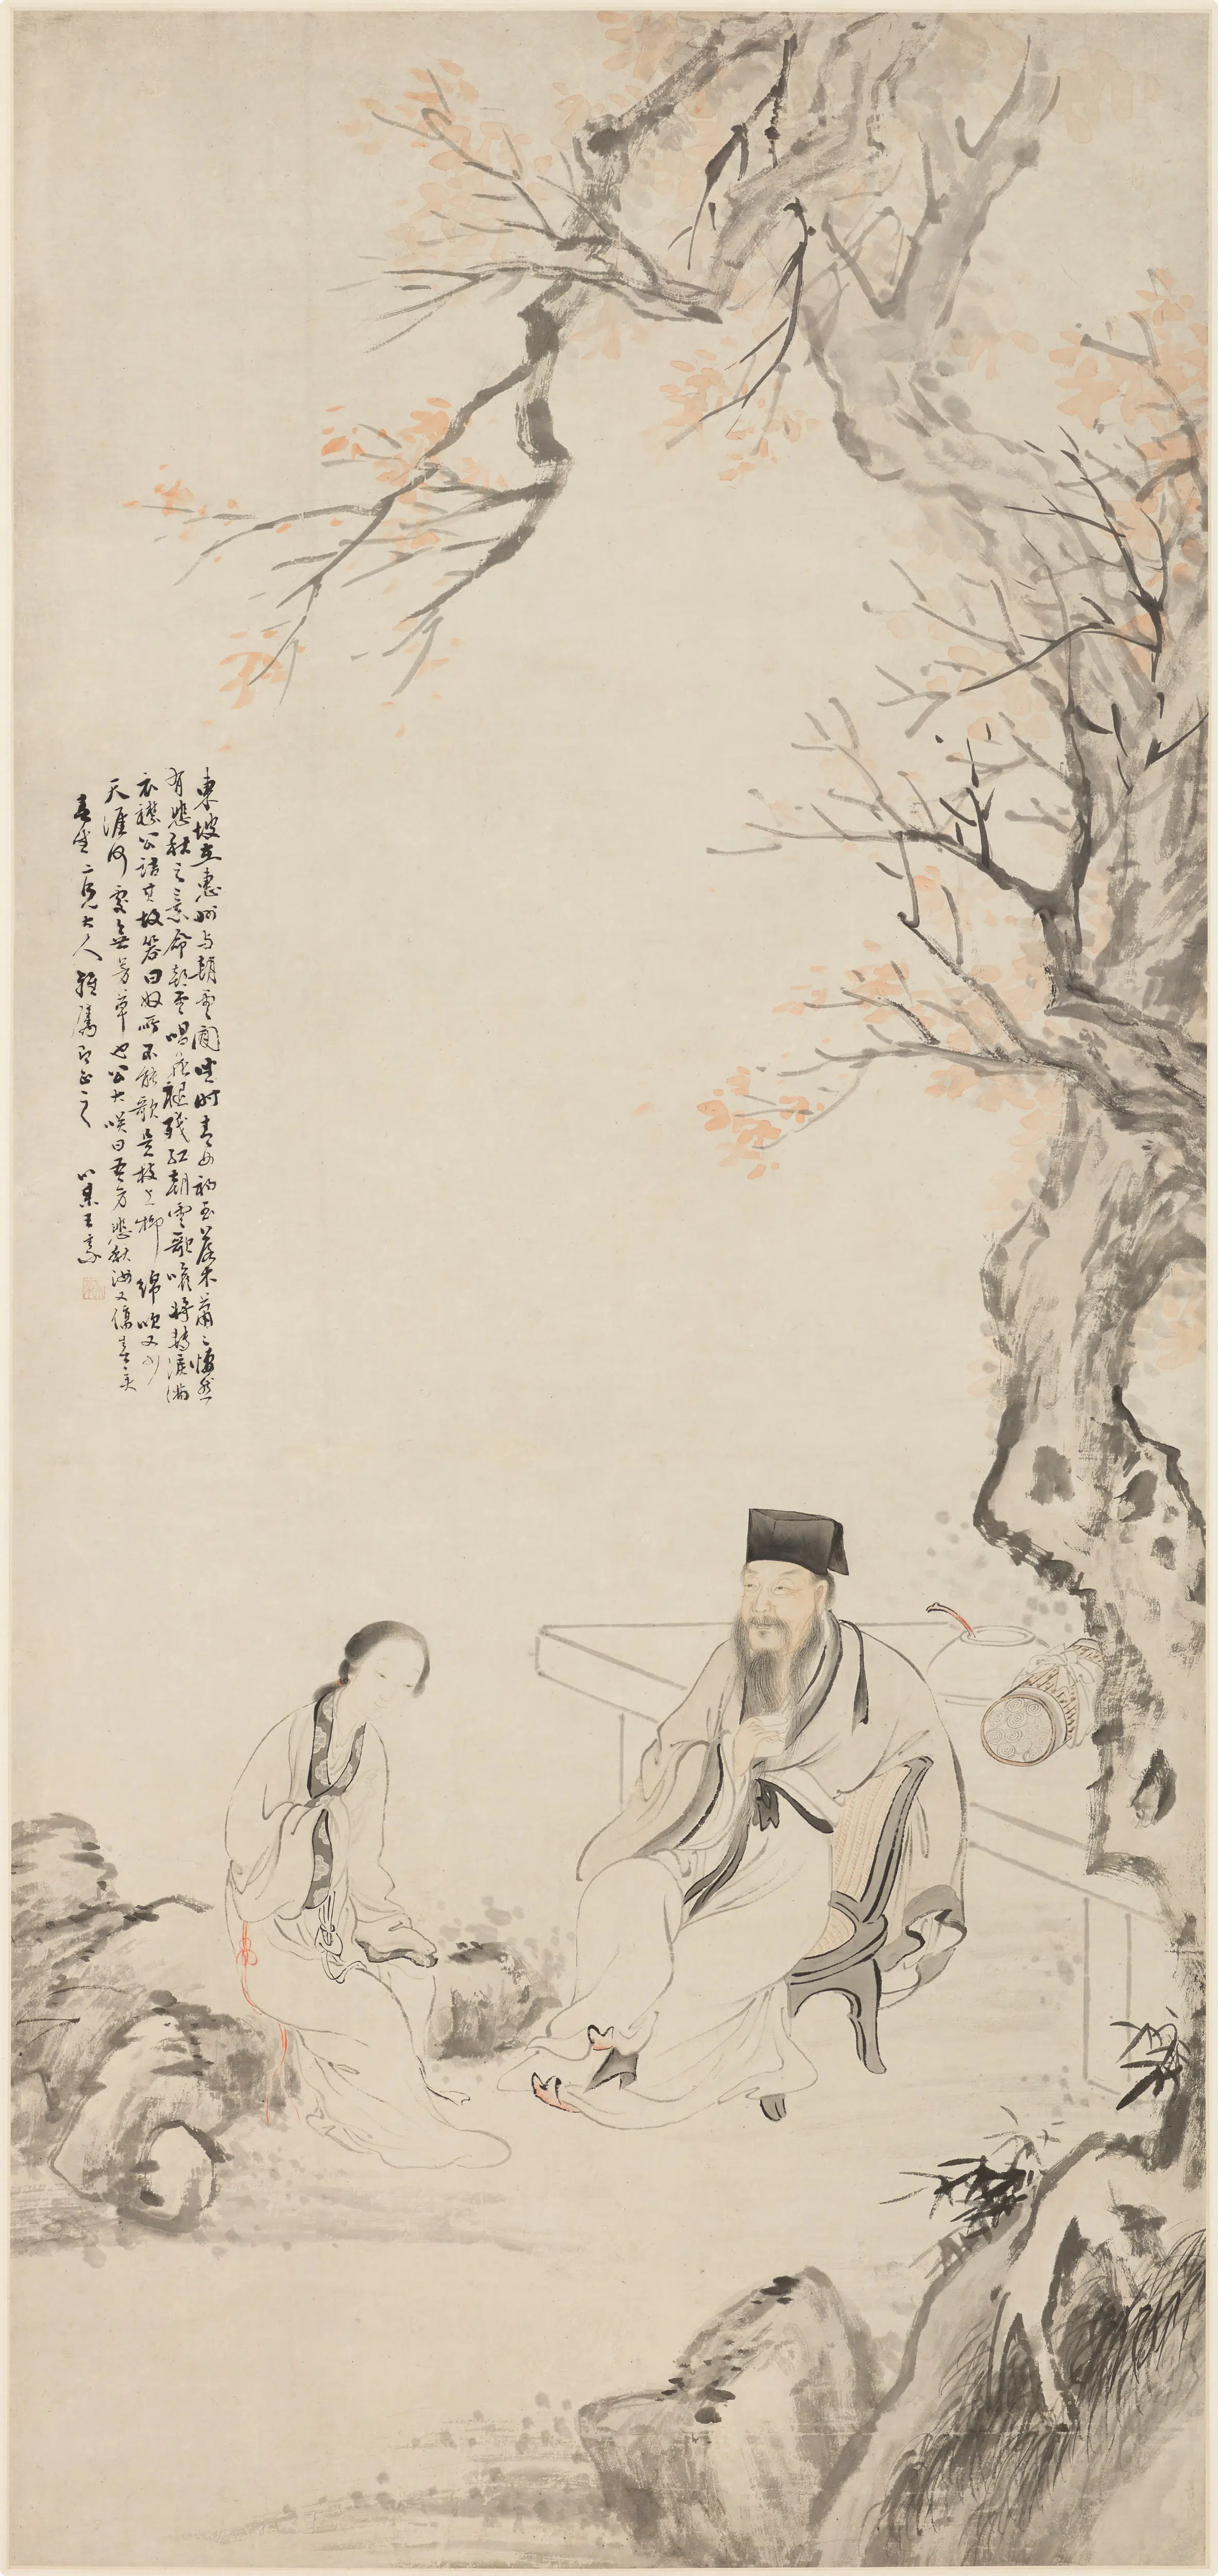 東坡在惠州与朝雲閒坐時青女初至落木蕭〻悽然
有悲秋之意命朝雲唱花褪殘紅朝雲歌喉將囀淚滿
衣襟公詰其故答曰奴所不能歌是枝上柳綿吹又少
天涯何處無芳草也公大咲曰吾方悲秋汝又傷春矣
二兄大人雅屬即正之 小某王素